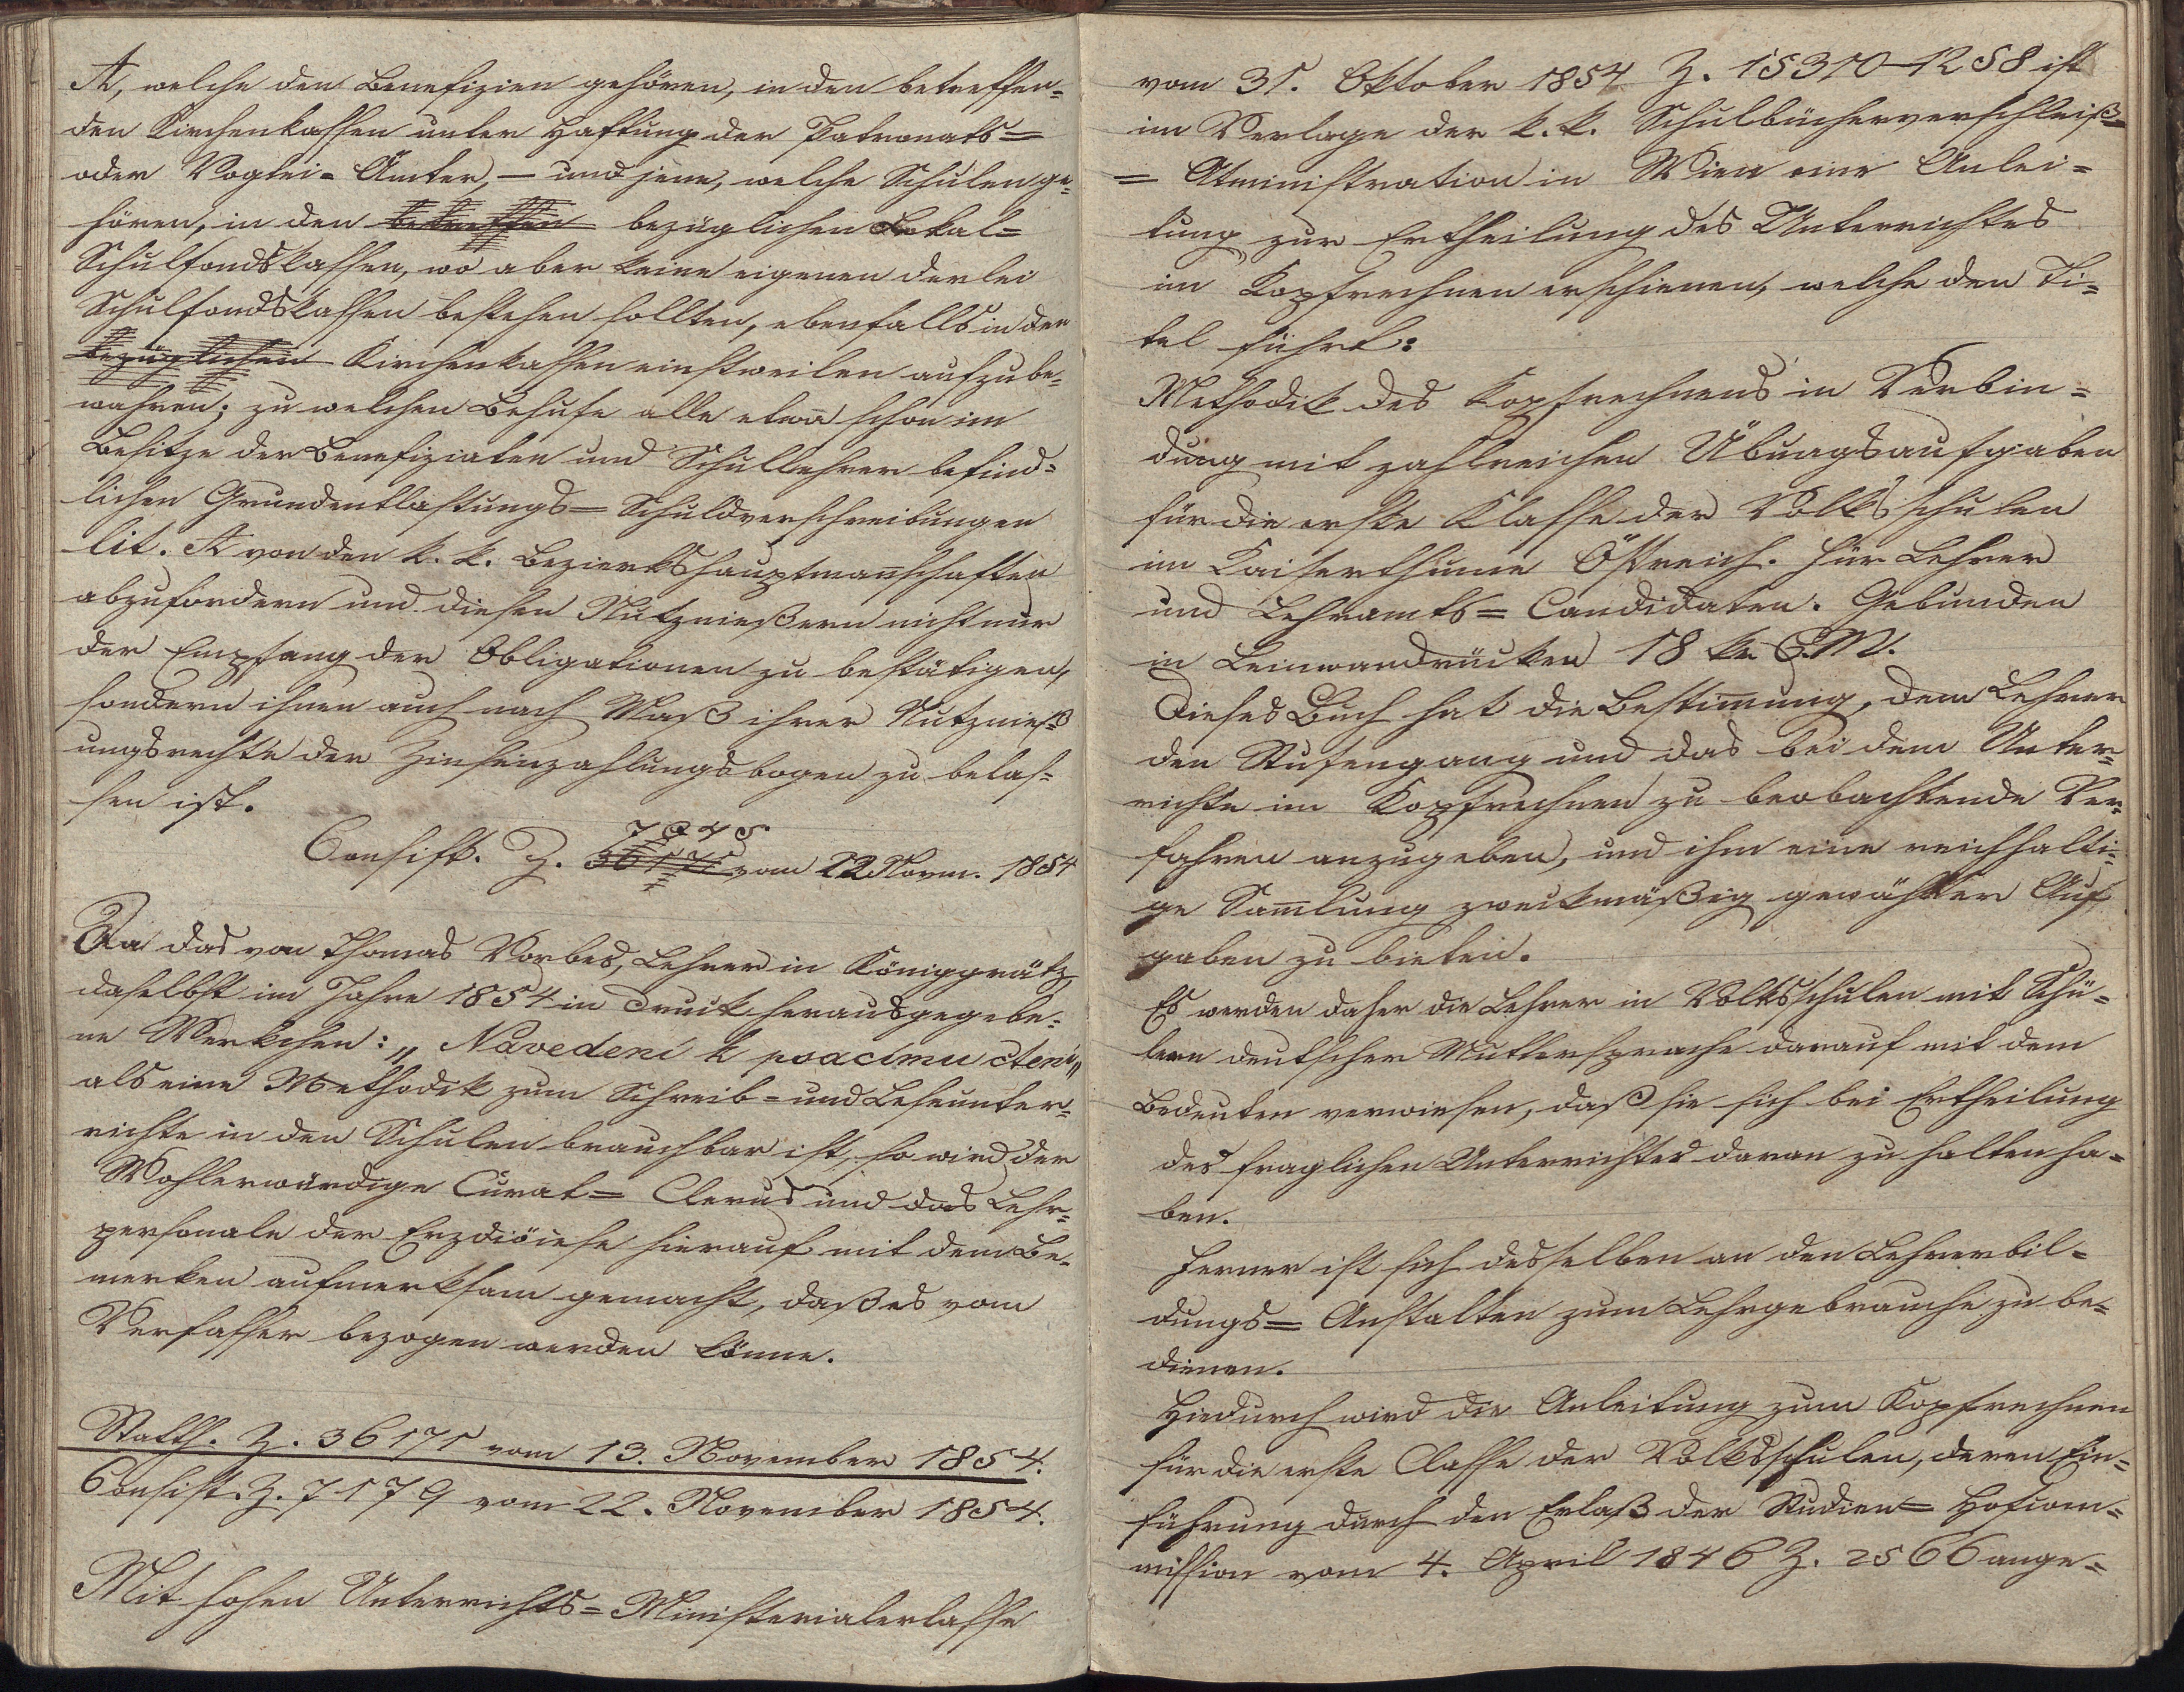 A, welche den Benefizien gehören, in den betreffen=
den Kirchenkassen unter Haftung der Patronats=
oder Vogtei=Ämter, – und jene, welche Schulen ge=
hören, in den betreffen bezüglichen Lokal=
Schulfondskassen, wo aber keine eigenen derlei
Schulfondskassen bestehen sollten, ebenfalls in den
bezüglichen Kirchenkassen einstweilen aufzube=
wahren; zu welchen Behufe alle etwa schon im
Besitze der Benefiziaten und Schullehrer befind=
lichen Grundentlastungs=Schuldverschreibungen
lit. A von den k. k. Bezierkshauptmanschaften
abzufordern und diesen Nutznießern nicht nur
der Empfang der Obligationen zu bestätigen,
sondern ihnen auch nach Maß ihrer Nutznieß=
ungsrechte der Zinseinzahlungsbogen zu belas=
sen ist.
7245
Consist. Z. 36171 vom 22 Novem. 1854
Da das von Thomas Vorbes, Lehrer in Königgrätz,
daselbst im Jahre 1854 in Druck herausgegebe=
ne Werkchen: „Navedeni k psacimu cteni„
als eine Methodik zum Schreib= und Leseunter=
richte in den Schulen brauchbar ist, so wird der
Wohlerwürdige Curat=Clerus und das Lehr=
personale der Erzdiöcese hierauf mit dem Be=
merken aufmerksam gemacht, daß es vom
Verfasser bezogen werden könne.
Statth. Z. 36171 vom 13. November 1854.
Consist. Z. 7179 vom 22. November 1854.
Mit hohen Unterrichts=Ministerialerlasse
vom 31. Oktober 1854 Z. 15310–1258 ist
im Verlage der k. k. Schulbücherverschleiß=
=Atministration in Wien eine Anlei=
tung zur Ertheilung des Unterrichtes
im Kopfrechnen erschienen, welche den Ti=
tel führt:
Methodik des Kopfrechnens in Verbin=
dung mit zahlreichen Übungsaufgaben
für die erste Klasse der Volksschulen
im Kaiserthume Östreich. Für Lehrer
und Lehramts=Candidaten. Gebunden
in Leinwandrücken 18 kr C. M.
Dieses Buch hat die Bestimung, dem Lehrer
den Stufengang und das bei dem Unter=
richte im Kopfrechnen zu beobachtende Ver=
fahren anzugeben, und ihm eine reichhalti=
ge Samlung zweckmäßig gewählter Auf
gaben zu bieten.
Es werden daher die Lehrer in Volksschulen mit Schü=
lern deutscher Muttersprache darauf mit dem
Bedeuten verwiesen, daß sie sich bei Ertheilung
des fraglichen Unterrichtes daran zu halten ha=
ben.
Ferner ist sich desselben an den Lehrerbil=
dungs=Anstalten zum Lehrgebrauche zu be=
dienen.
Hiedurch wird die Anleitung zum Kopfrechnen
für die erste Classe der Volksschulen, deren Ein=
führung durch den Erlaß der Studien=Hofcom=
mission vom 4. April 1846 Z. 2566 ange=